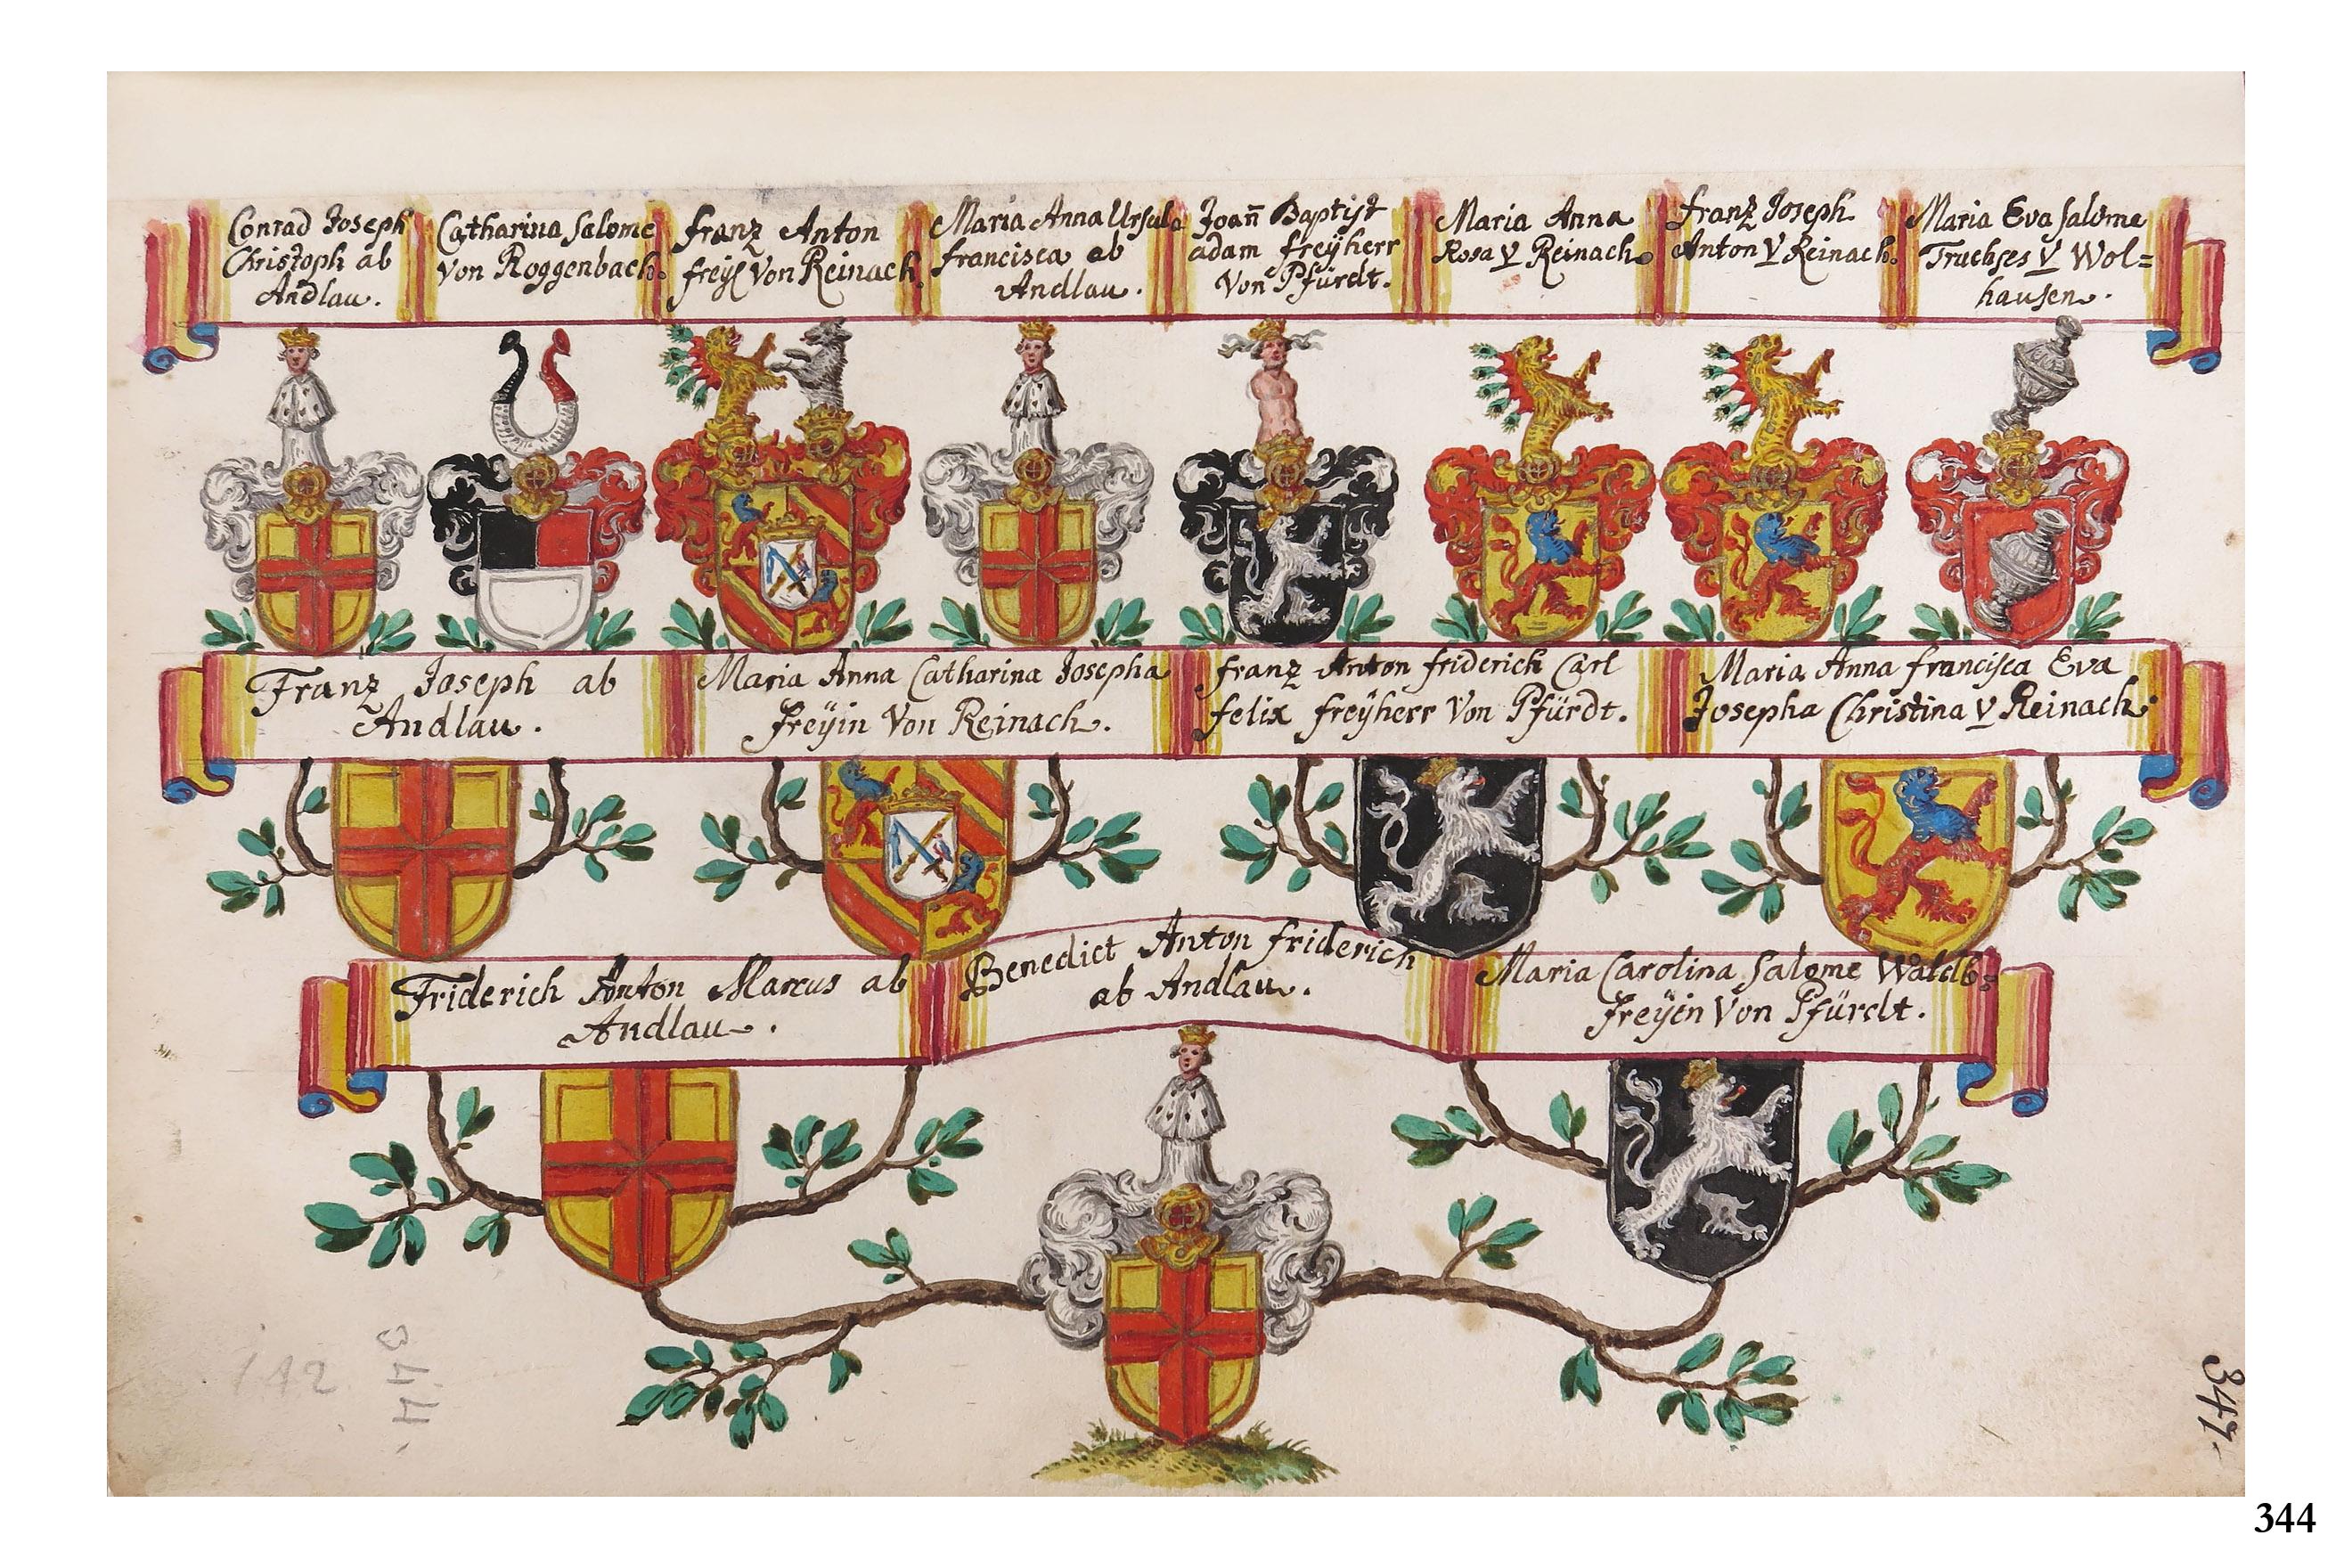 Conrad Joseph
Christoph ab
Andlau.
Catharina Salome
Von Roggenbach.
Franz Anton
freÿ Von Reinach.
Maria Anna Ursula
francisca ab
Andlau.
Joañ Baptist
adam freÿherr
Von Pfürdt.
Maria Anna
Rosa V Reinach.
franz Joseph
Anton V Reinach.
Maria Eva Salome
Truchses V Wol=
hausen.
Franz Joseph ab
Andlau.
Maria Anna Catharina Josepha
freÿin Von Reinach.
franz Anton friderich Carl
felix freÿherr Von Pfürdt.
Maria Anna francisca Eva
Josepha Christina V Reinach.
Friderich Anton Marcus ab
Andlau.
Benedict Anton friderich
ab Andlau.
Maria Carolina Salome Waldb=
freÿin Von Pfürdt.
112
347.
344